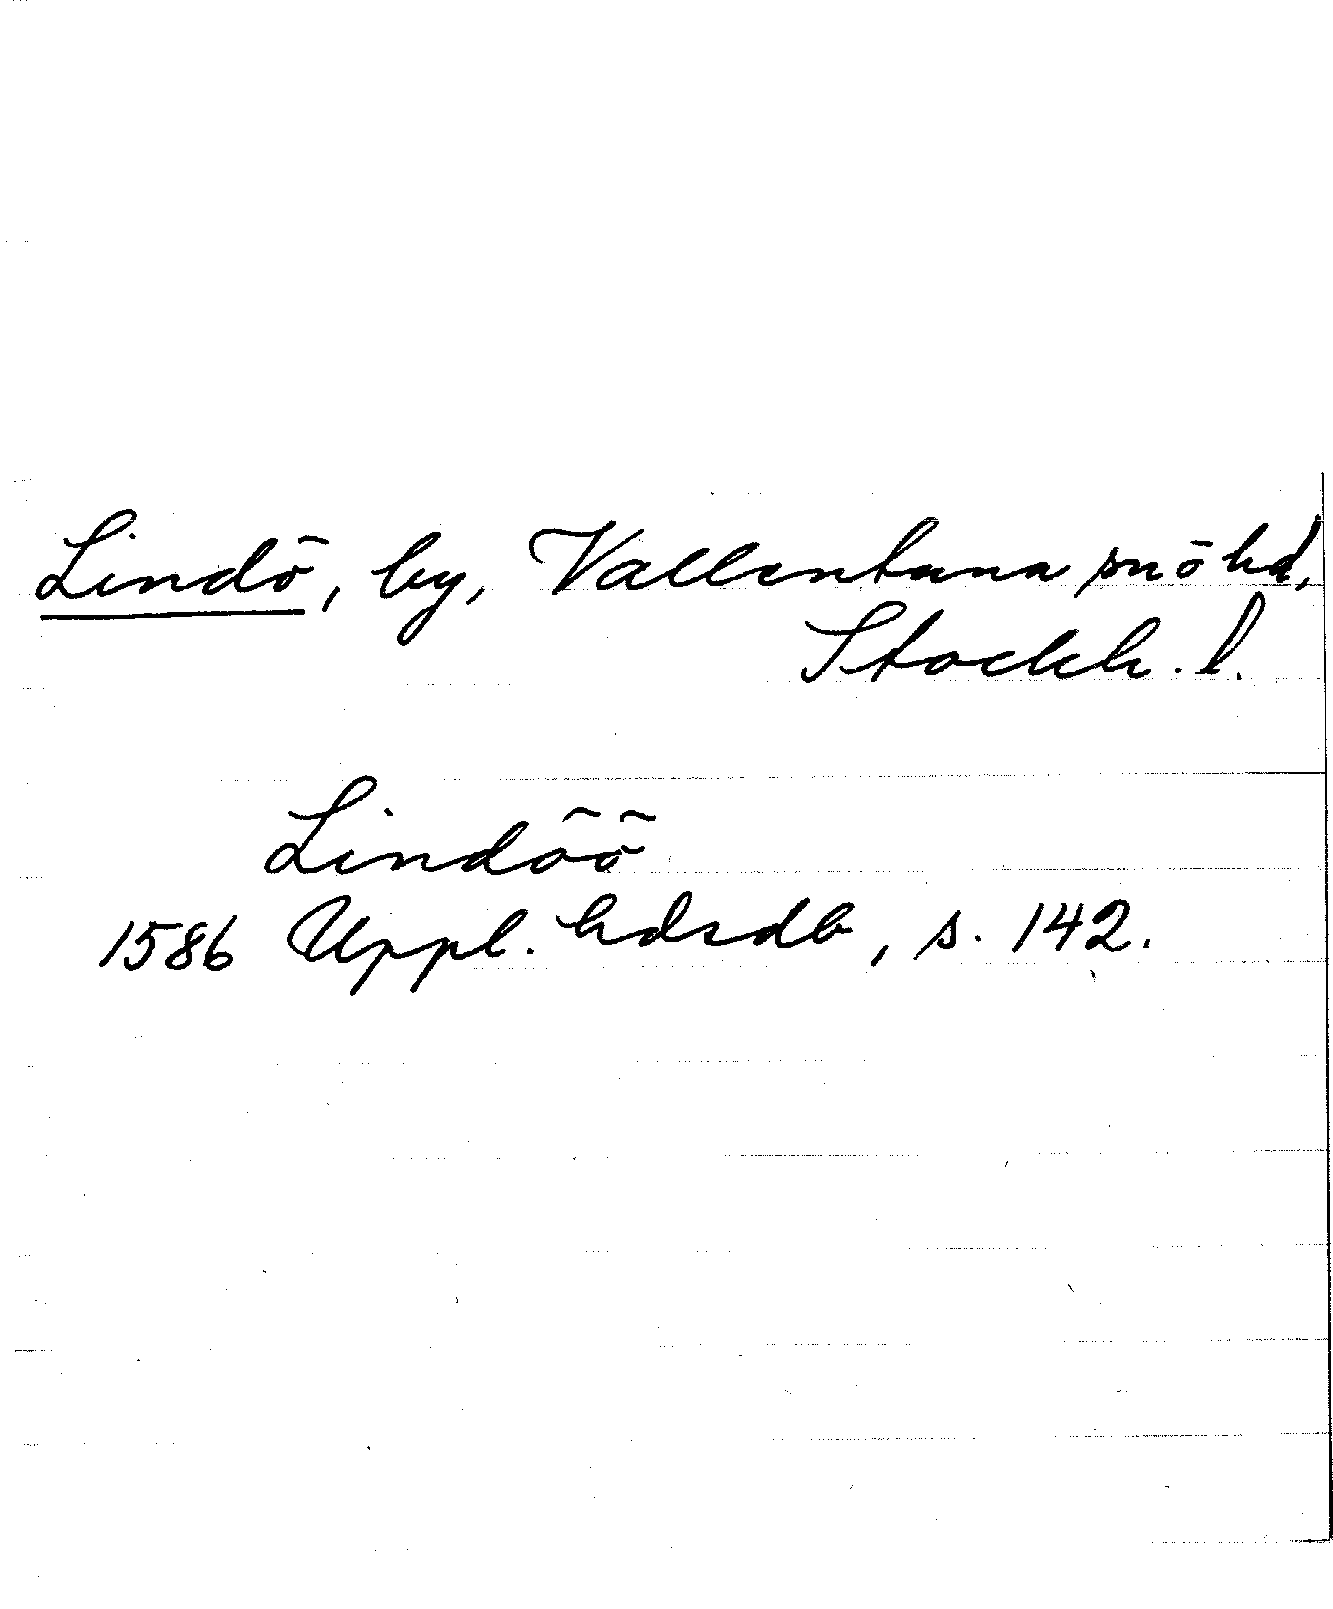 Lindö, by, Vallentuna sn o hd,
Stockh. l.
Lindöö
1586 Uppl. hdsdb, s. 142.